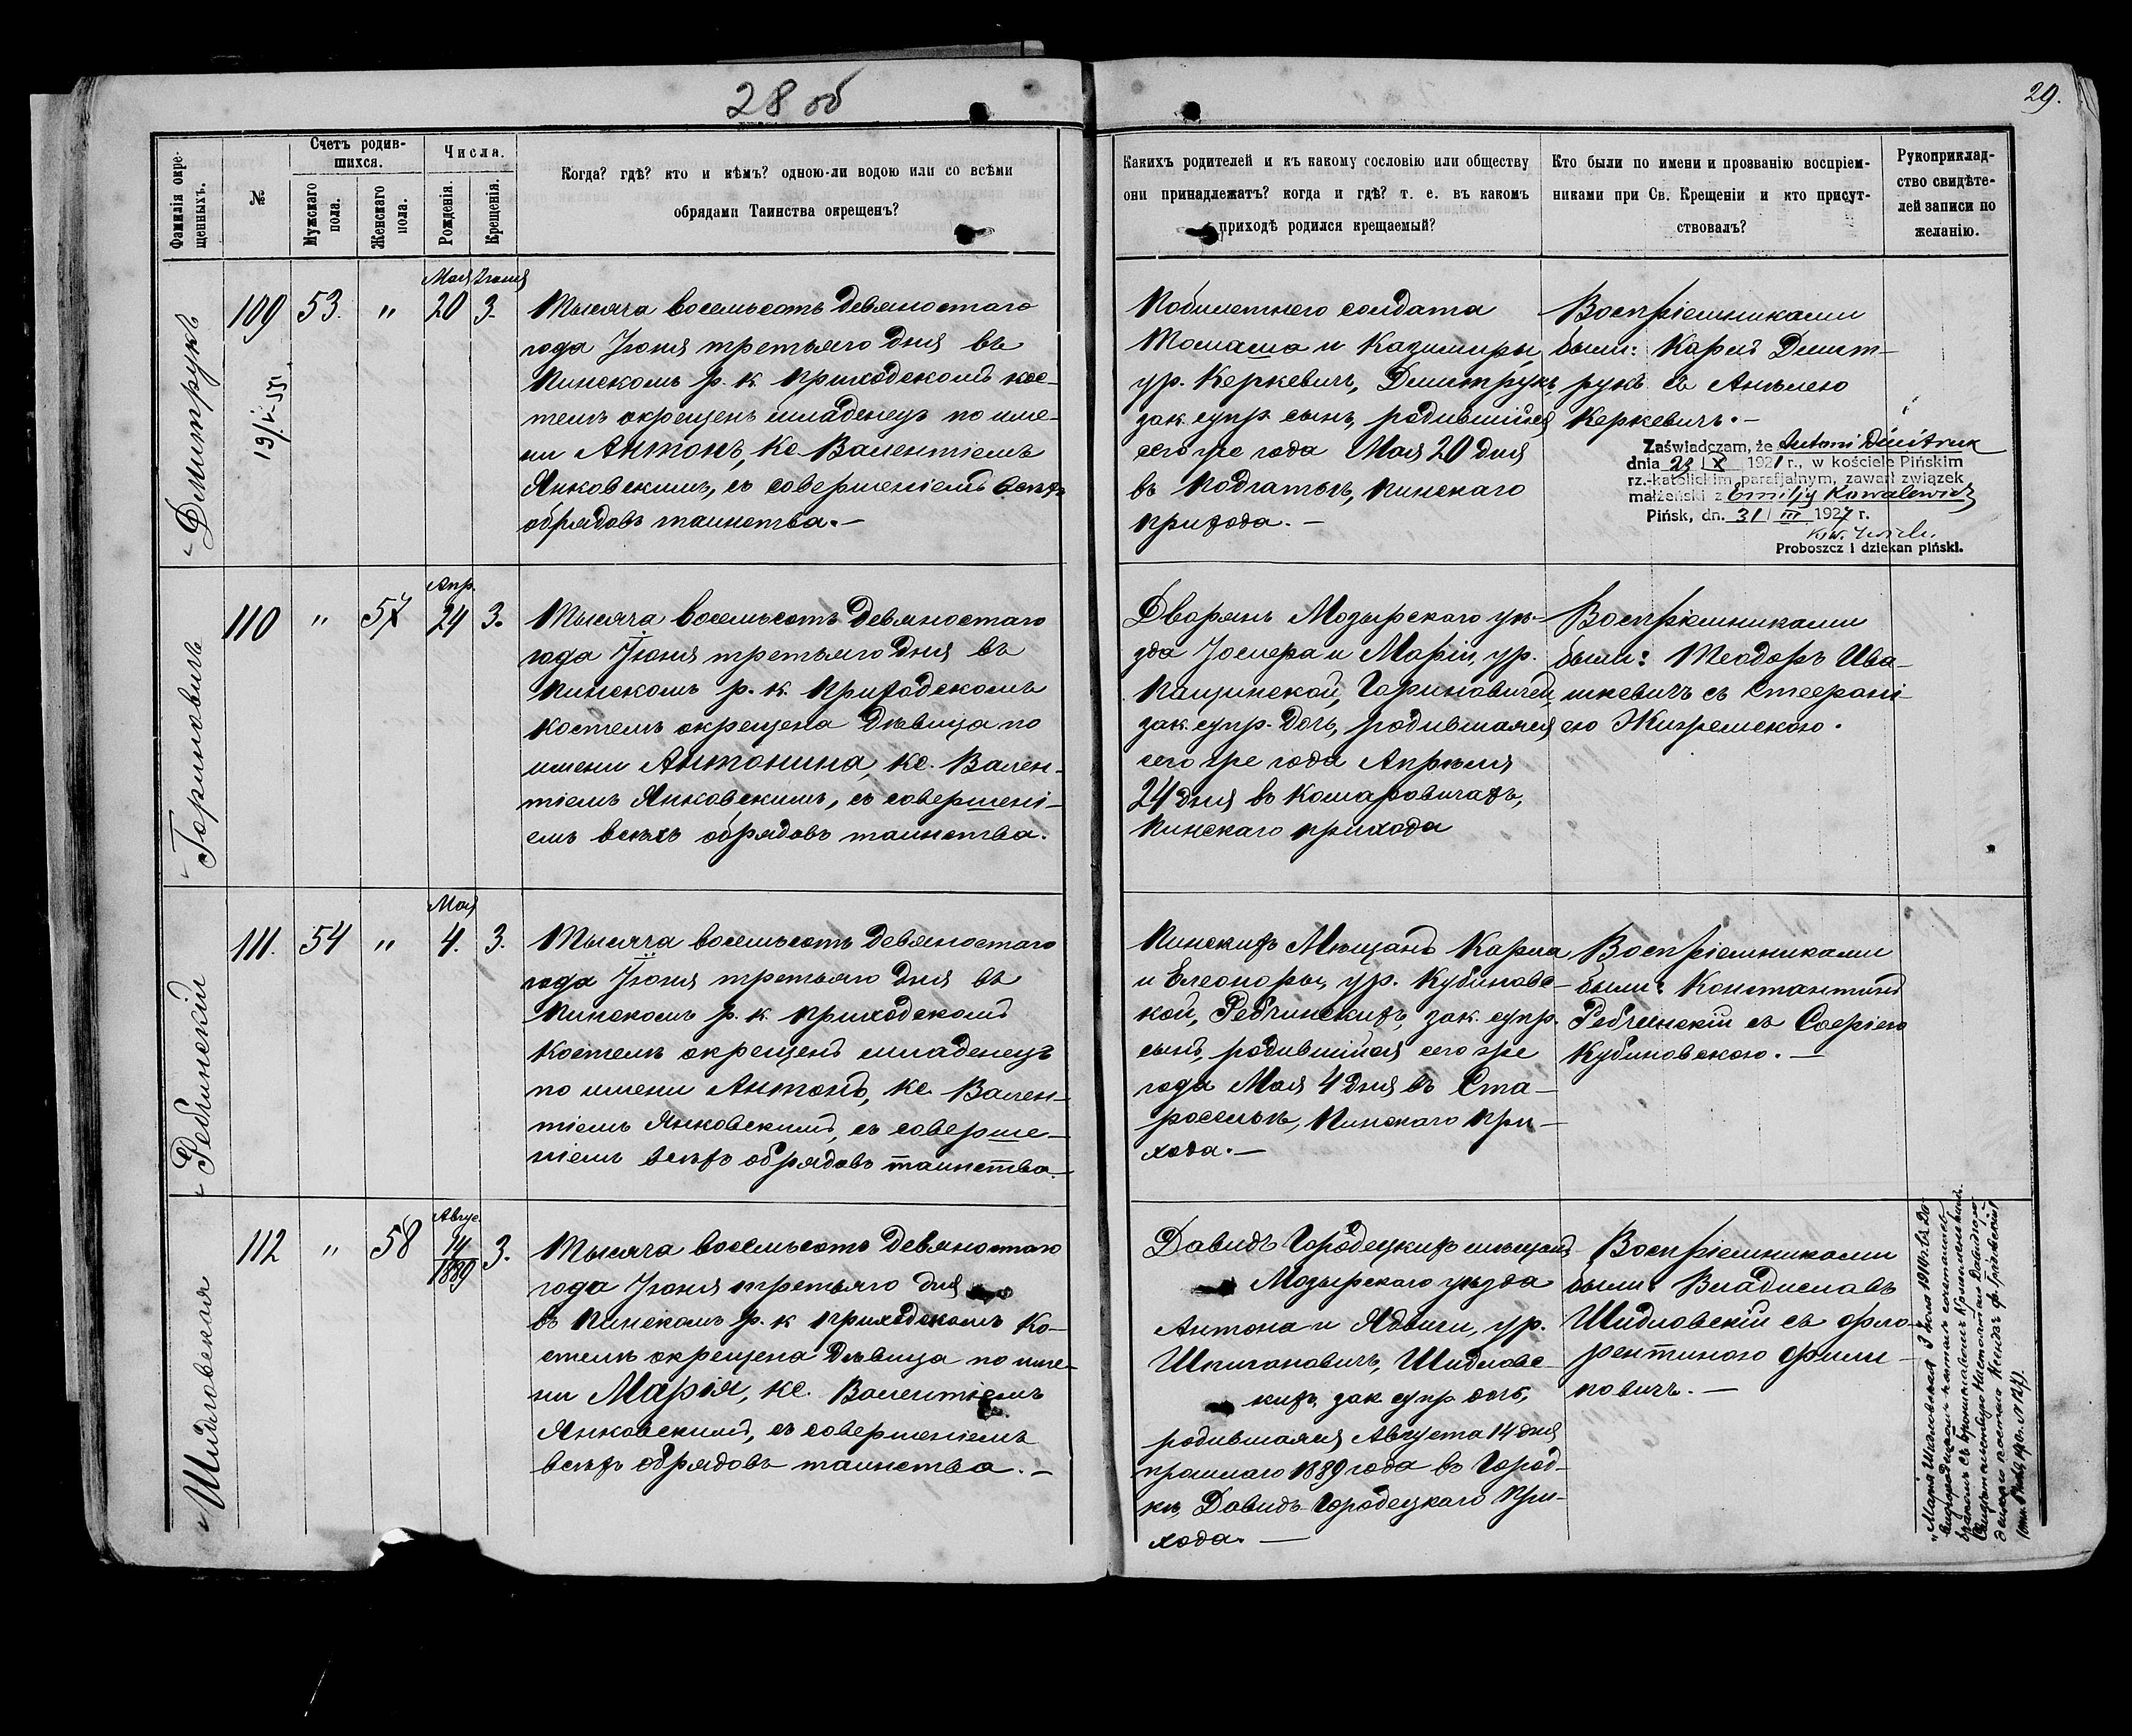 28 об
29.
Фамилія окре-
щенныхъ.
№
Счетъ родив-
шихся.
Мужскаго
пола.
Женскаго
пола.
Числа.
Рожденія.
Крещенія.
Когда? гдѣ? кто и кѣмъ? одною-ли водою или со всѣми
обрядами Таинства окрещенъ?
Какихъ родителей и къ какому сословію или обществу
они принадлежатъ? когда и гдѣ? т. е. въ какомъ
приходѣ родился крещаемый?
Кто были по имени и прозванію воспріем-
никами при Св. Крещеніи и кто присут-
ствовалъ?
Рукоприклад-
ство свидѣте-
лей записи по
желанію.
Дмитрукъ
109
53.
"
Мая
20
Іюня
3.
Тысяча восемьсотъ девяностаго
года Іюня третьяго дня въ
Пинскомъ р. к. приходскомъ кос-
телѣ окрещенъ младенецъ по име-
ни Антонъ, кс Валентіемъ
Янковскимъ, съ совершеніемъ всѣхъ
обрядовъ таинства.—
Побилетнего солдата
Томаша и Казимиры,
ур. Керкевичъ, Дмитрукъ,
зак. супр. сынъ, родившійся
сего же года Мая 20 дня
въ Подгатьѣ, Пинскаго
прихода.—
Воспріемниками
были: Карлъ Дмит-
рукъ съ Анѣлею
Керкевичъ.—
Zaświadczam, że Antoni Dmitruk
dnia 23 | X 1921 r., w kościele Pińskim
rz.-katolickim parafjalnym, zawarł związek
małżeński z Emilją Kowalewicz
Pińsk, dn. 31 | III 1927 r.
Proboszcz i dziekan piński.
Гориновичъ
110
"
57
Апр.
24
3.
Тысяча восемьсотъ девяностаго
года Іюня третьяго дня въ
Пинскомъ р. к. приходскомъ
костелѣ окрещена дѣвица по
имени Антонина, кс. Вален-
тіемъ Янковскимъ, съ совершені-
емъ всѣхъ обрядовъ таинства.
Дворянъ Мозырскаго уѣ-
зда Іосифа и Маріи, ур.
Пащинской, Гориновичей,
зак. супр. дочь, родившаяся
сего же года Апрѣля
24 дня въ Комаровичахъ,
Пинскаго прихода
Воспріемниками
были: Теодоръ Ива-
шкевичъ съ Стефані-
ею
Ребчинскій
111.
54
"
Мая
4.
3.
Тысяча восемьсотъ девяностаго
года Іюня третьяго дня въ
Пинскомъ р. к. приходскомъ
костелѣ окрещенъ младенецъ
по имени Антонъ, кс. Вален-
тіемъ Янковскимъ, съ соверше-
ніемъ всѣхъ обрядовъ таинства.
Пинскихъ Мѣщанъ Карла
и Елеоноры, ур. Кубиновс-
кой, Ребчинскихъ, зак. супр.
сынъ, родившійся сего же
года Мая 4 дня въ Ста-
роселѣ, Пинскаго при-
хода.—
Воспріемниками
были: Константинъ
Ребчинскій съ Софіею
Кубиновскою.—
Шидловская
112
"
58
Авгус.
14
1889
3.
Тысяча восемьсотъ девяностаго
года Іюня третьяго дня
въ Пинскомъ р. к. приходскомъ ко-
стелѣ окрещена дѣвица по име-
ни Марія, кс. Валентіемъ
Янковскимъ, съ совершеніемъ
всѣхъ обрядовъ таинства.—
Давидъ Городецкихъ мѣщанъ
Мозырскаго уѣзда
Антона и Ядвиги, ур.
Шпигановичъ, Шидловс-
кихъ, зак. супр. дочь,
родившаяся Августа 14 дня
прошлаго 1889 года въ Город-
кѣ, Давидъ-Городецкаго при-
хода.—
Воспріемниками
были: Владиславъ
Шидловскій съ Фло-
рентиною Фили-
повичъ.—